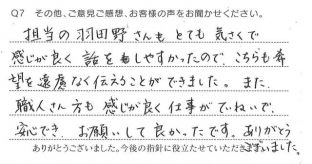 Q7 その他、ご意見ご感想、お客様の声をお聞かせください。
担当の羽田野さんも とても 気さくで
感じが良く 話を もしやすかったので、こちらも希
望を遠慮なく伝えることができました。また
職人さん方も 感じが良く 仕事が ていねいで、
安心でき、お願いして良かったです。ありがとう
ございました。
ありがとうございました。今後の指針に役立たせていただき